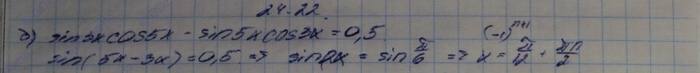 24.22.
б) sin3xcos5x - sin5xcos3x = 0,5
sin(5x-3x) = 0,5 => sin2x = sin π/6 => x = (-1)ⁿ⁺¹ π/12 + πn/2